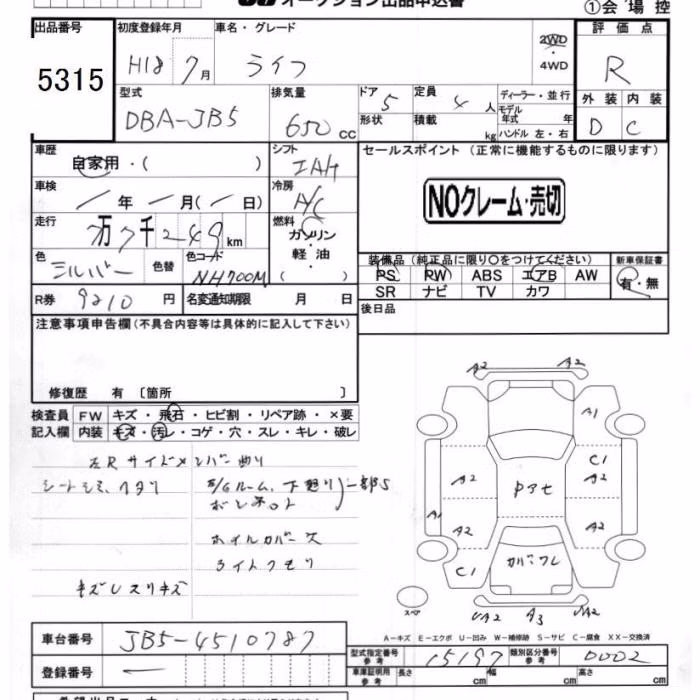 オークション出品申込書
①会場控
出品番号
5315
初度登録年月
H18 7月
車名・グレード
ライフ
2WD
・
4WD
評価点
R
外装 内装
D C
型式
DBA-JB5
排気量
650 CC
ドア 5
形状
定員 4 人
積載 kg
ディーラー・並行
モデル
年式 年
ハンドル 左・右
車歴
自家用・( )
シフト
IAT
車検
年 月( 日)
冷房
A/C
走行
万7千249km
燃料
ガソリン
・
軽油
( )
色
シルバー
色替
色コード
NH700M
R券 9210 円
名変通知期限 月 日
セールスポイント (正常に機能するものに限ります)
NOクレーム・売切
装備品(純正品に限り〇をつけてください)
PS PW ABS エアB AW
SR ナビ TV カワ
新車保証書
有・無
後日品
注意事項申告欄(不具合内容等は具体的に記入して下さい)
修復歴 有 〔箇所 〕
検査員 FW キズ・飛石・ヒビ割・リペア跡・×要
記入欄 内装 キズ・汚レ・コゲ・穴・スレ・キレ・破レ
左Rサイドメンバー曲り
シートシミ、ヘタリ
ボンネット
ホイルカバース
ライトクモリ
キズレスリキズ
A2 A2
A1
C1
A2 A2
A1 A2 A2
C1
スペア
A2 A3 A2
A-キズ E-エクボ U-凹み W-補修跡 S-サビ C-腐食 XX-交換済
車台番号 JB5-4510787
登録番号
型式指定番号
参考
15197
類別区分番号
参考
0002
車庫証明用
参考
長さ 幅 高さ